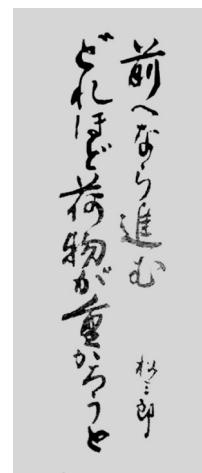 前へなら進む
どれほど荷物が重かろうと
松三郎